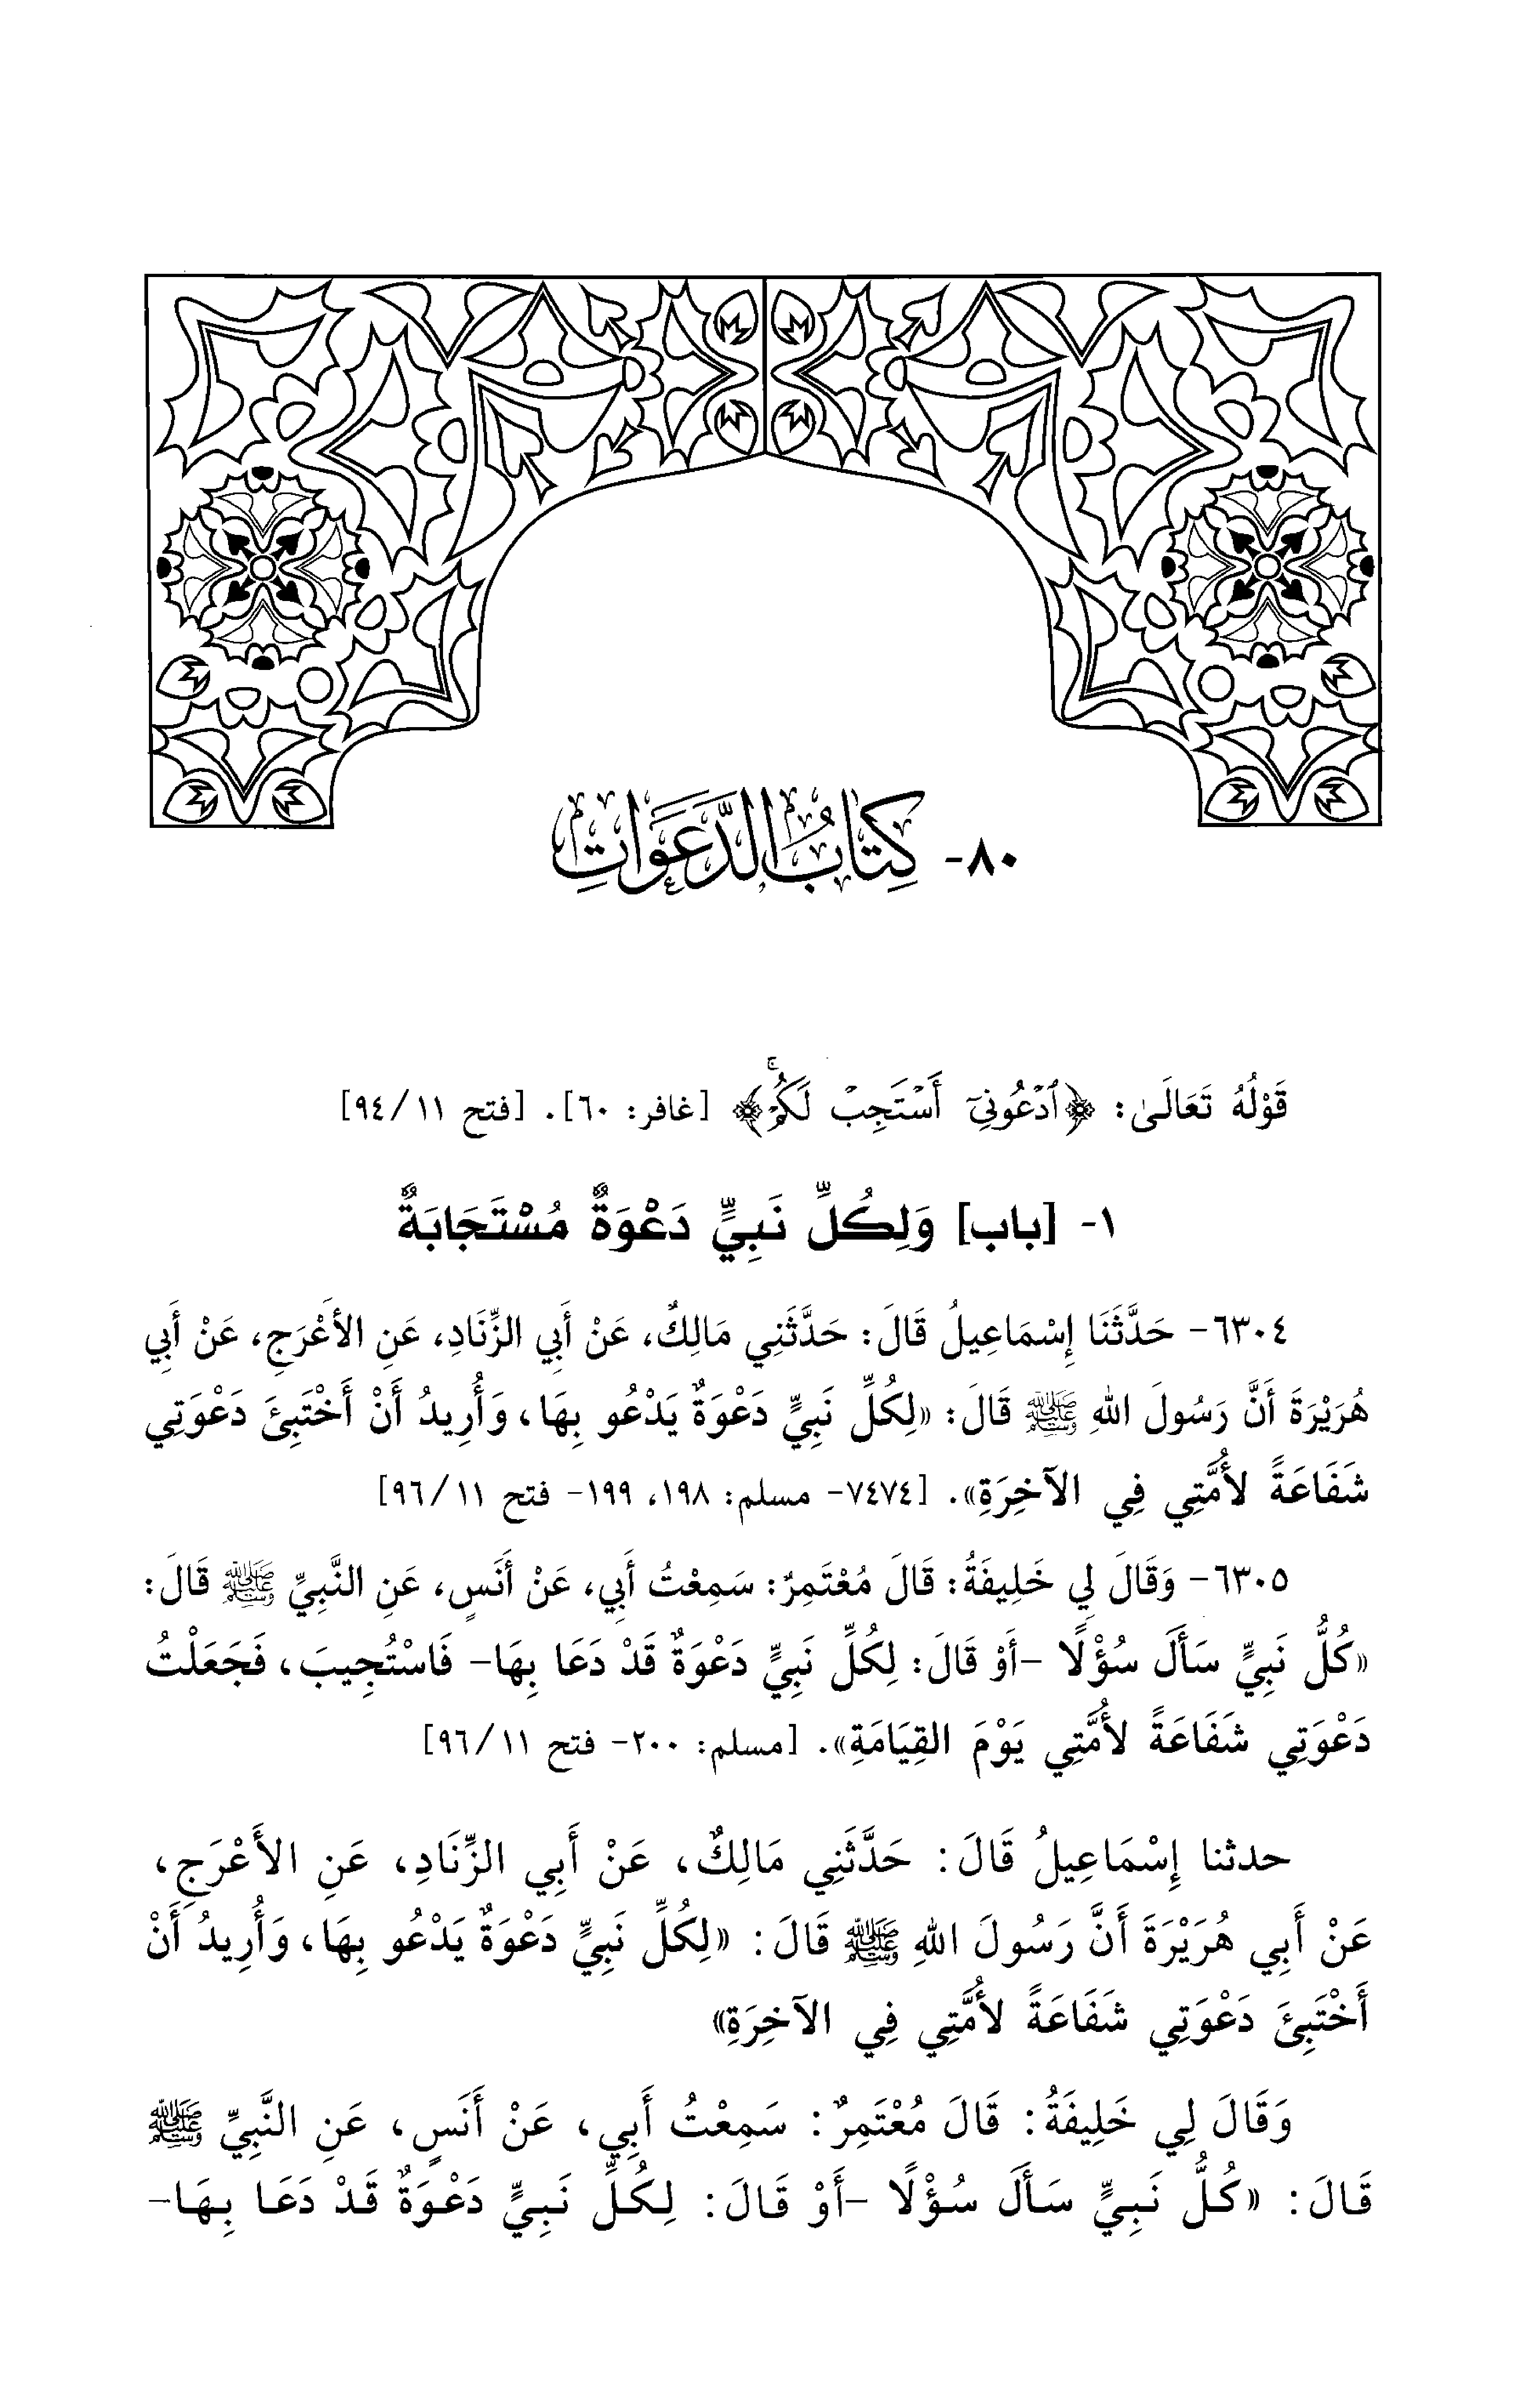 ٨٠- كِتَابُ الدَّعَوَاتِ
قَوْلُهُ تَعَالَىٰ: ﴿ٱدْعُونِىٓ أَسْتَجِبْ لَكُمْۚ﴾ [غافر: ٦٠]. [فتح ١١/ ٩٤]
١- [باب] وَلِكُلِّ نَبِيٍّ دَعْوَةٌ مُسْتَجَابَةٌ
٦٣٠٤- حَدَّثَنَا إِسْمَاعِيلُ قَالَ: حَدَّثَنِي مَالِكٌ، عَنْ أَبِي الزِّنَادِ، عَنِ الأَعْرَجِ، عَنْ أَبِي
هُرَيْرَةَ أَنَّ رَسُولَ اللهِ ﷺ قَالَ: «لِكُلِّ نَبِيٍّ دَعْوَةٌ يَدْعُو بِهَا، وَأُرِيدُ أَنْ أَخْتَبِئَ دَعْوَتِي
شَفَاعَةً لأُمَّتِي فِي الآخِرَةِ». [٧٤٧٤- مسلم: ١٩٨، ١٩٩- فتح ١١/ ٩٦]
٦٣٠٥- وَقَالَ لِي خَلِيفَةُ: قَالَ مُعْتَمِرٌ: سَمِعْتُ أَبِي، عَنْ أَنَسٍ، عَنِ النَّبِيِّ ﷺ قَالَ:
«كُلُّ نَبِيٍّ سَأَلَ سُؤْلًا -أَوْ قَالَ: لِكُلِّ نَبِيٍّ دَعْوَةٌ قَدْ دَعَا بِهَا- فَاسْتُجِيبَ، فَجَعَلْتُ
دَعْوَتِي شَفَاعَةً لأُمَّتِي يَوْمَ القِيَامَةِ». [مسلم: ٢٠٠- فتح ١١/ ٩٦]
حدثنا إِسْمَاعِيلُ قَالَ: حَدَّثَنِي مَالِكٌ، عَنْ أَبِي الزِّنَادِ، عَنِ الأَعْرَجِ،
عَنْ أَبِي هُرَيْرَةَ أَنَّ رَسُولَ اللهِ ﷺ قَالَ: «لِكُلِّ نَبِيٍّ دَعْوَةٌ يَدْعُو بِهَا، وَأُرِيدُ أَنْ
أَخْتَبِئَ دَعْوَتِي شَفَاعَةً لأُمَّتِي فِي الآخِرَةِ»
وَقَالَ لِي خَلِيفَةُ: قَالَ مُعْتَمِرٌ: سَمِعْتُ أَبِي، عَنْ أَنَسٍ، عَنِ النَّبِيِّ ﷺ
قَالَ: «كُلُّ نَبِيٍّ سَأَلَ سُؤْلًا -أَوْ قَالَ: لِكُلِّ نَبِيٍّ دَعْوَةٌ قَدْ دَعَا بِهَا-